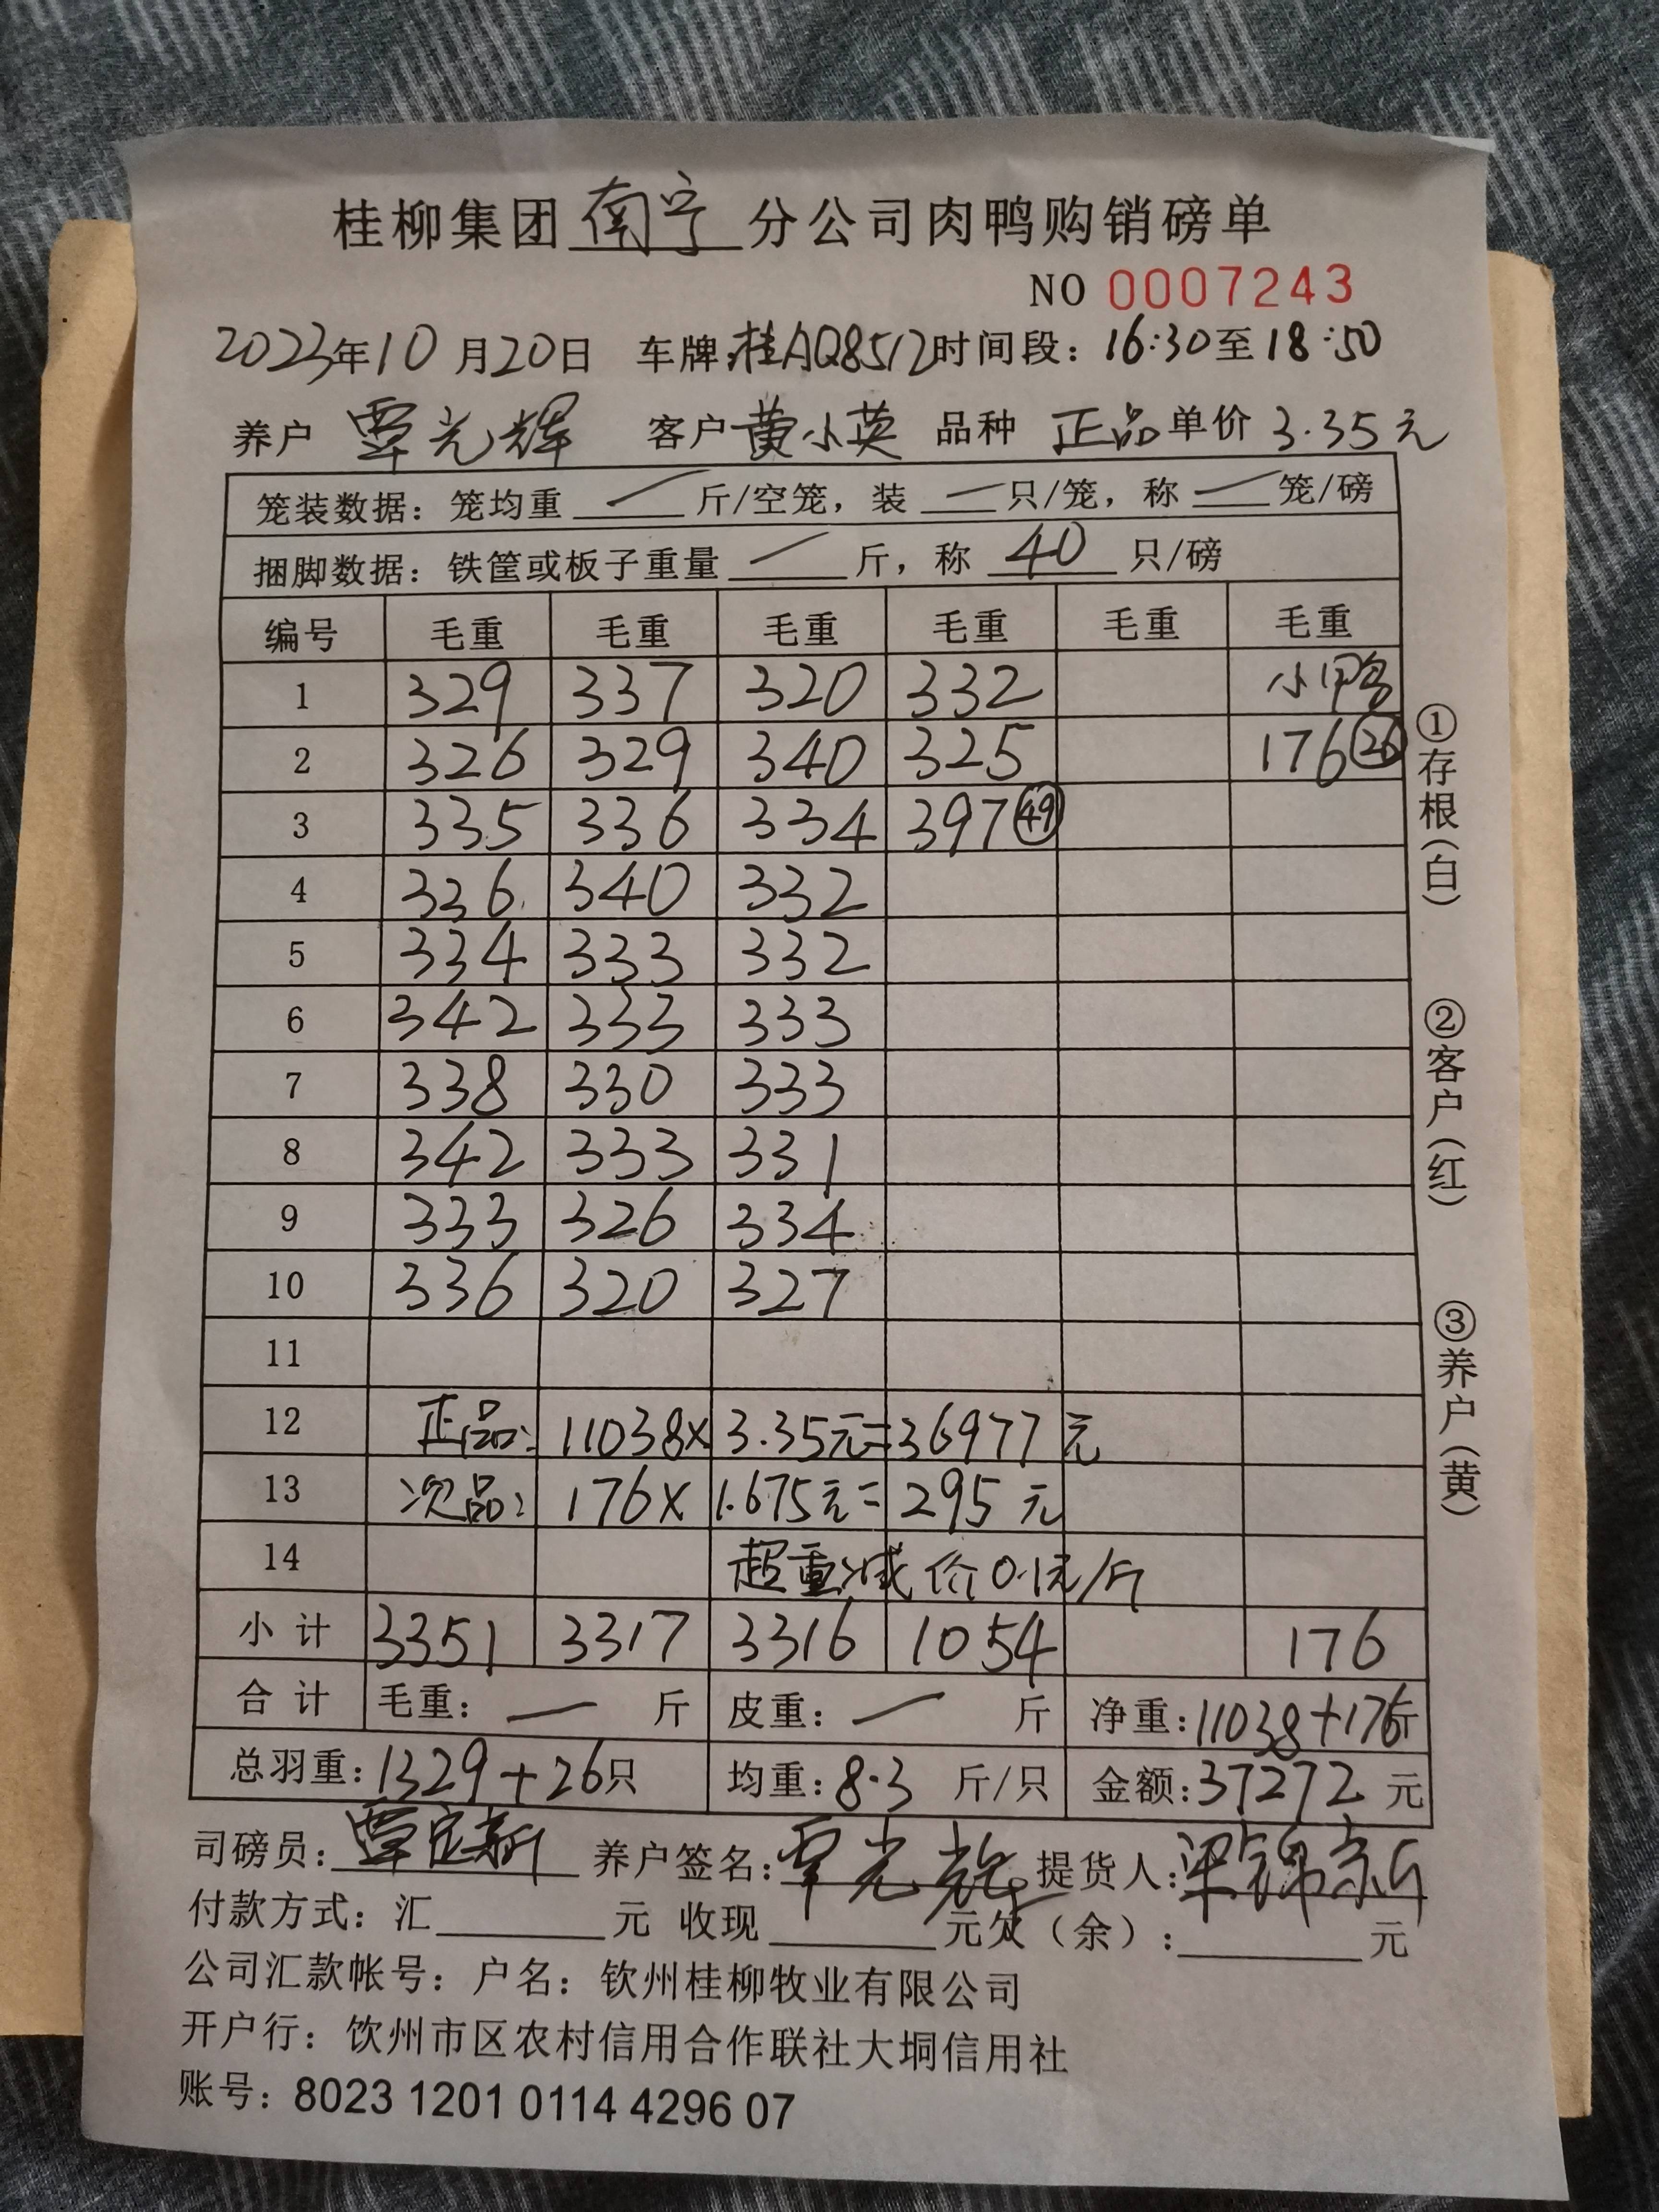 桂柳集团南宁分公司肉鸭购销磅单
NO 0007243
2023年10月20日 车牌:桂AQ8512时间段：16:30至18:50
养户 覃光辉 客户 黄小英 品种 正品 单价 3.35元
笼装数据：笼均重 — 斤/空笼，装 — 只/笼，称 — 笼/磅
捆脚数据：铁筐或板子重量 — 斤，称 40 只/磅
编号 毛重 毛重 毛重 毛重 毛重 毛重
1 329 337 320 332 小鸭
2 326 329 340 325 176 26
3 335 336 334 397 49
4 336 340 332
5 334 333 332
6 342 333 333
7 338 330 333
8 342 333 331
9 333 326 334
10 336 320 327
11
12 正品: 11038× 3.35元=36977元
13 次品: 176× 1.675元=295元
14 超重减价0.1元/斤
小计 3351 3317 3316 1054 176
合计 毛重：— 斤 皮重：— 斤 净重:11038+176斤
总羽重:1329+26只 均重:8.3 斤/只 金额:37272 元
司磅员: 养户签名:覃光辉 提货人:梁锦
付款方式：汇 元 收现 元欠（余）: 元
公司汇款帐号：户名：钦州桂柳牧业有限公司
开户行：饮州市区农村信用合作联社大垌信用社
账号：8023 1201 0114 4296 07
①存根（白）
②客户（红）
③养户（黄）